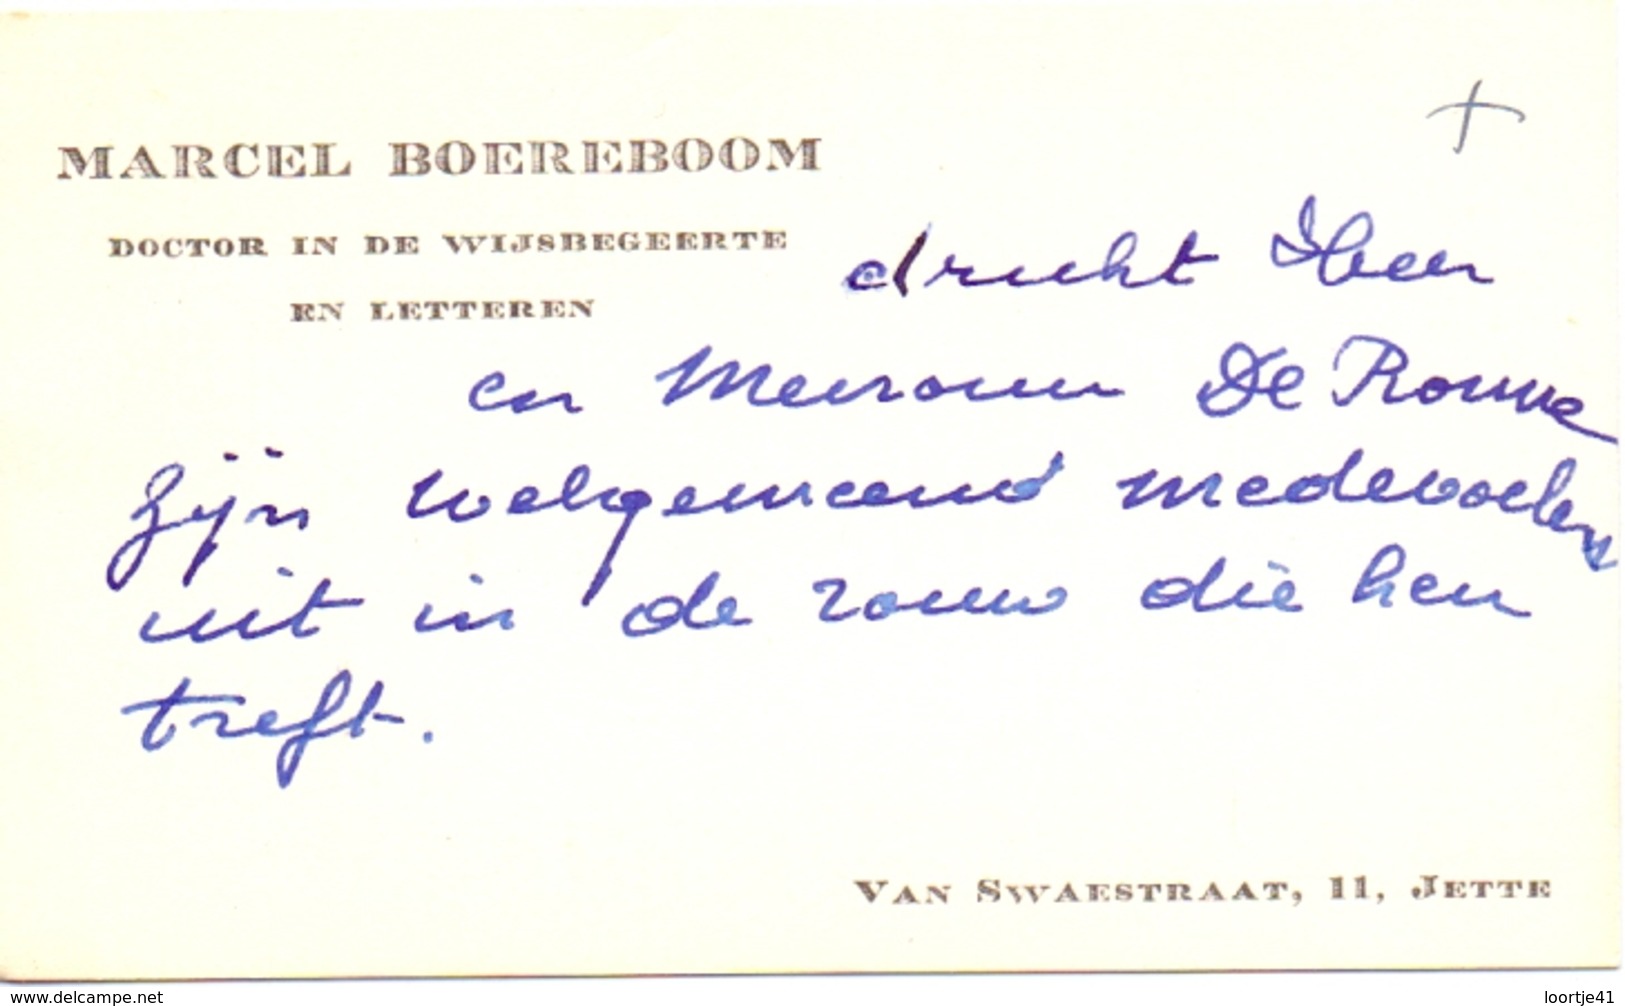 MARCEL BOEREBOOM
DOCTOR IN DE WIJSBEGEERTE
EN LETTEREN
drukt Heer
en Mevrouw De Rouwe
zijn welgemeend medevoelen
uit in de rouw die hen
treft.
VAN SWAESTRAAT, 11, JETTE
www.delcampe.net
loortje41